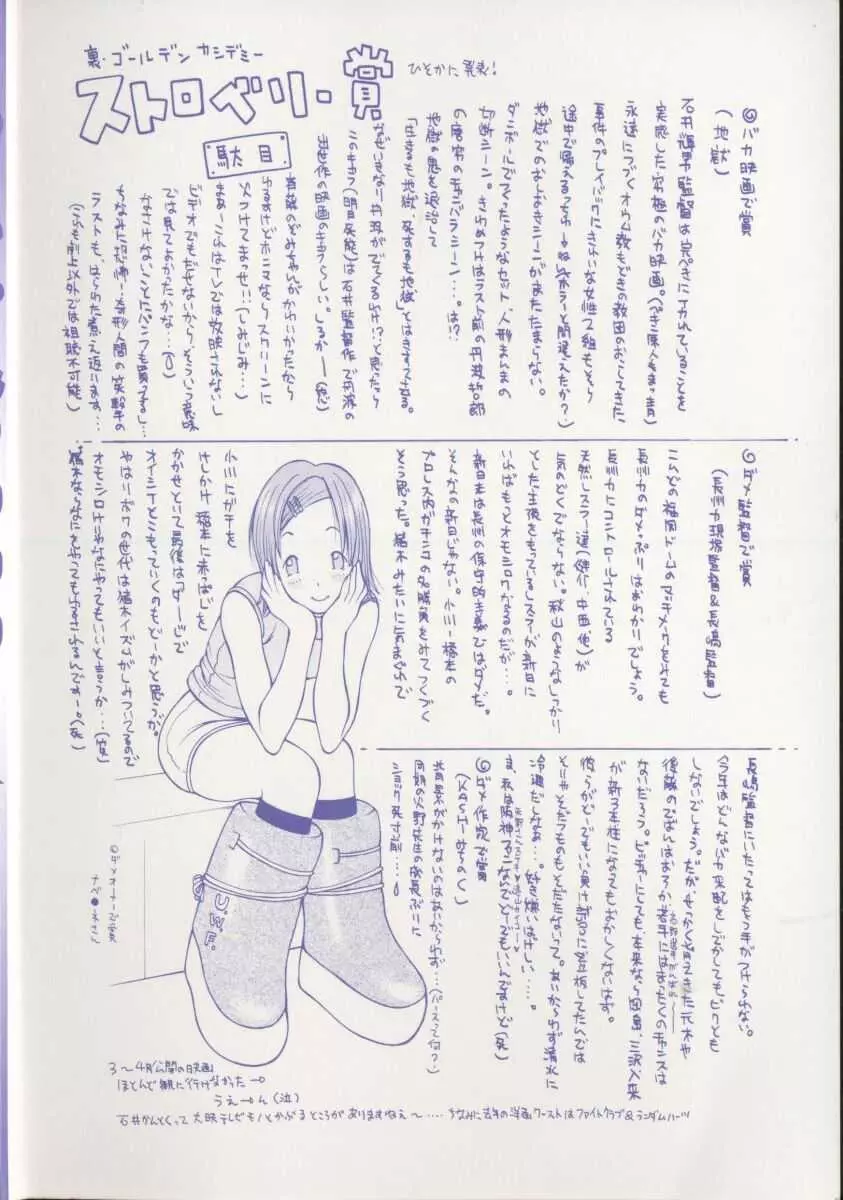 裏・ゴールデン カシデミー
ストロベリー・賞
ひそかに発表！
駄目
◎バカ映画で賞
（地獄）
石井輝男監督は完ぺきにイカれていることを
実感した、究極のバカ映画。
永遠につづくオウム教もどきの教団のおこしてきた
事件のプレイバックに
途中で帰える
地獄でのおしおきシーンがまたたまらない。
ダンボールでつくったようなセット、人形まるまるの
切断シーン。きわめつけはラスト前の丹波哲郎
の唐突のチャンバラシーン…。は！？
地獄の鬼を退治して
「生きるも地獄、死するも地獄」とはきすてさる。
なぜいきなり丹波がでてくるわけ！？と思ったら
このキャラ（明日死能）は石井監督作で丹波の
主世作の映画のキャラらしい。しるかー（怒）
首藤のどみちゃんがかわいかったから
ゆるすけどホンマならスクリーンに
火つけてまっせ！！（しみじみ…）
まあーこれはTVでは放映されないし
ビデオでもだせないからそういう意味
では見てよかったかな…
なさけないことにパンフも買うし…
ちなみに恐怖奇形人間の笑撃の
ラストも、はらわた煮え返ります…
（これも劇上以外では視聴不可能）
◎ダメ監督で賞
（長州力現場監督＆長島監督）
こないだの福岡ドームのマッチメークをみても
長州力のダメっぷりはあきらかでしょう。
長州力にコントロールされている
天然レスラー達（健介・中西他）が
気のどくでならない。秋山のようなしっかり
とした主張をもっているレスラーが新日に
いればもっとオモシロクなるのだが…。
新日本は長州の保守的主義ではダメだ。
そんなの新日じゃない。小川ー橋本の
プロレス内ガチンコの名勝負をみてつくづく
そう思った。猪木みたいに気まぐれで
小川にガチを
けしかけ橋本に赤っぱじを
かかせといて最後はフォローで
オイシイとこもっていくのもどーかと思うが、
やはりボクの世代は猪木イズムがしみついてるので
オモシロけりゃなにやってもいいと言うか…（笑）
猪木ならなにをやってもゆるされるんですー。（死）
長島監督にいたってはもう手がつけられない。
今年はどんなバカ采配をしでかしてもビクとも
しないでしょう。だが、せっかく育ってきた元木や
後藤のでばんはおろか若手にはまったくのチャンスは
ないだろう。ピッチャーにしても、本来なら岡島、三沢、入来
が新3本柱になってもおかしくないはず。
彼らがどーでもいい負け試合に登板してたんでは
そりゃそだつものもそだたないって。あいかわらず清水に
冷遇だしなあ…。好き嫌いはげしい…。
ま、私は阪神ファンなんでどーでもいいんですけど（死）
◎ダメ作家で賞
（KASHIみちのく）
背景がかけないのはあいかわらず…（パースって何？）
同期の火野先生の発育ぶりに
ショック死寸前…
U.W.F.
◎ダメオーナーで賞
ナベ●ネさん
3〜4月公開の日映画
ほとんど観に行けなかったー
うえーん（泣）
石井かんとくって 大映テレビモノとかぶるところがありますねえ〜…… ちなみに去年の洋画ワーストはファイトクラブ＆ランダムハーツ